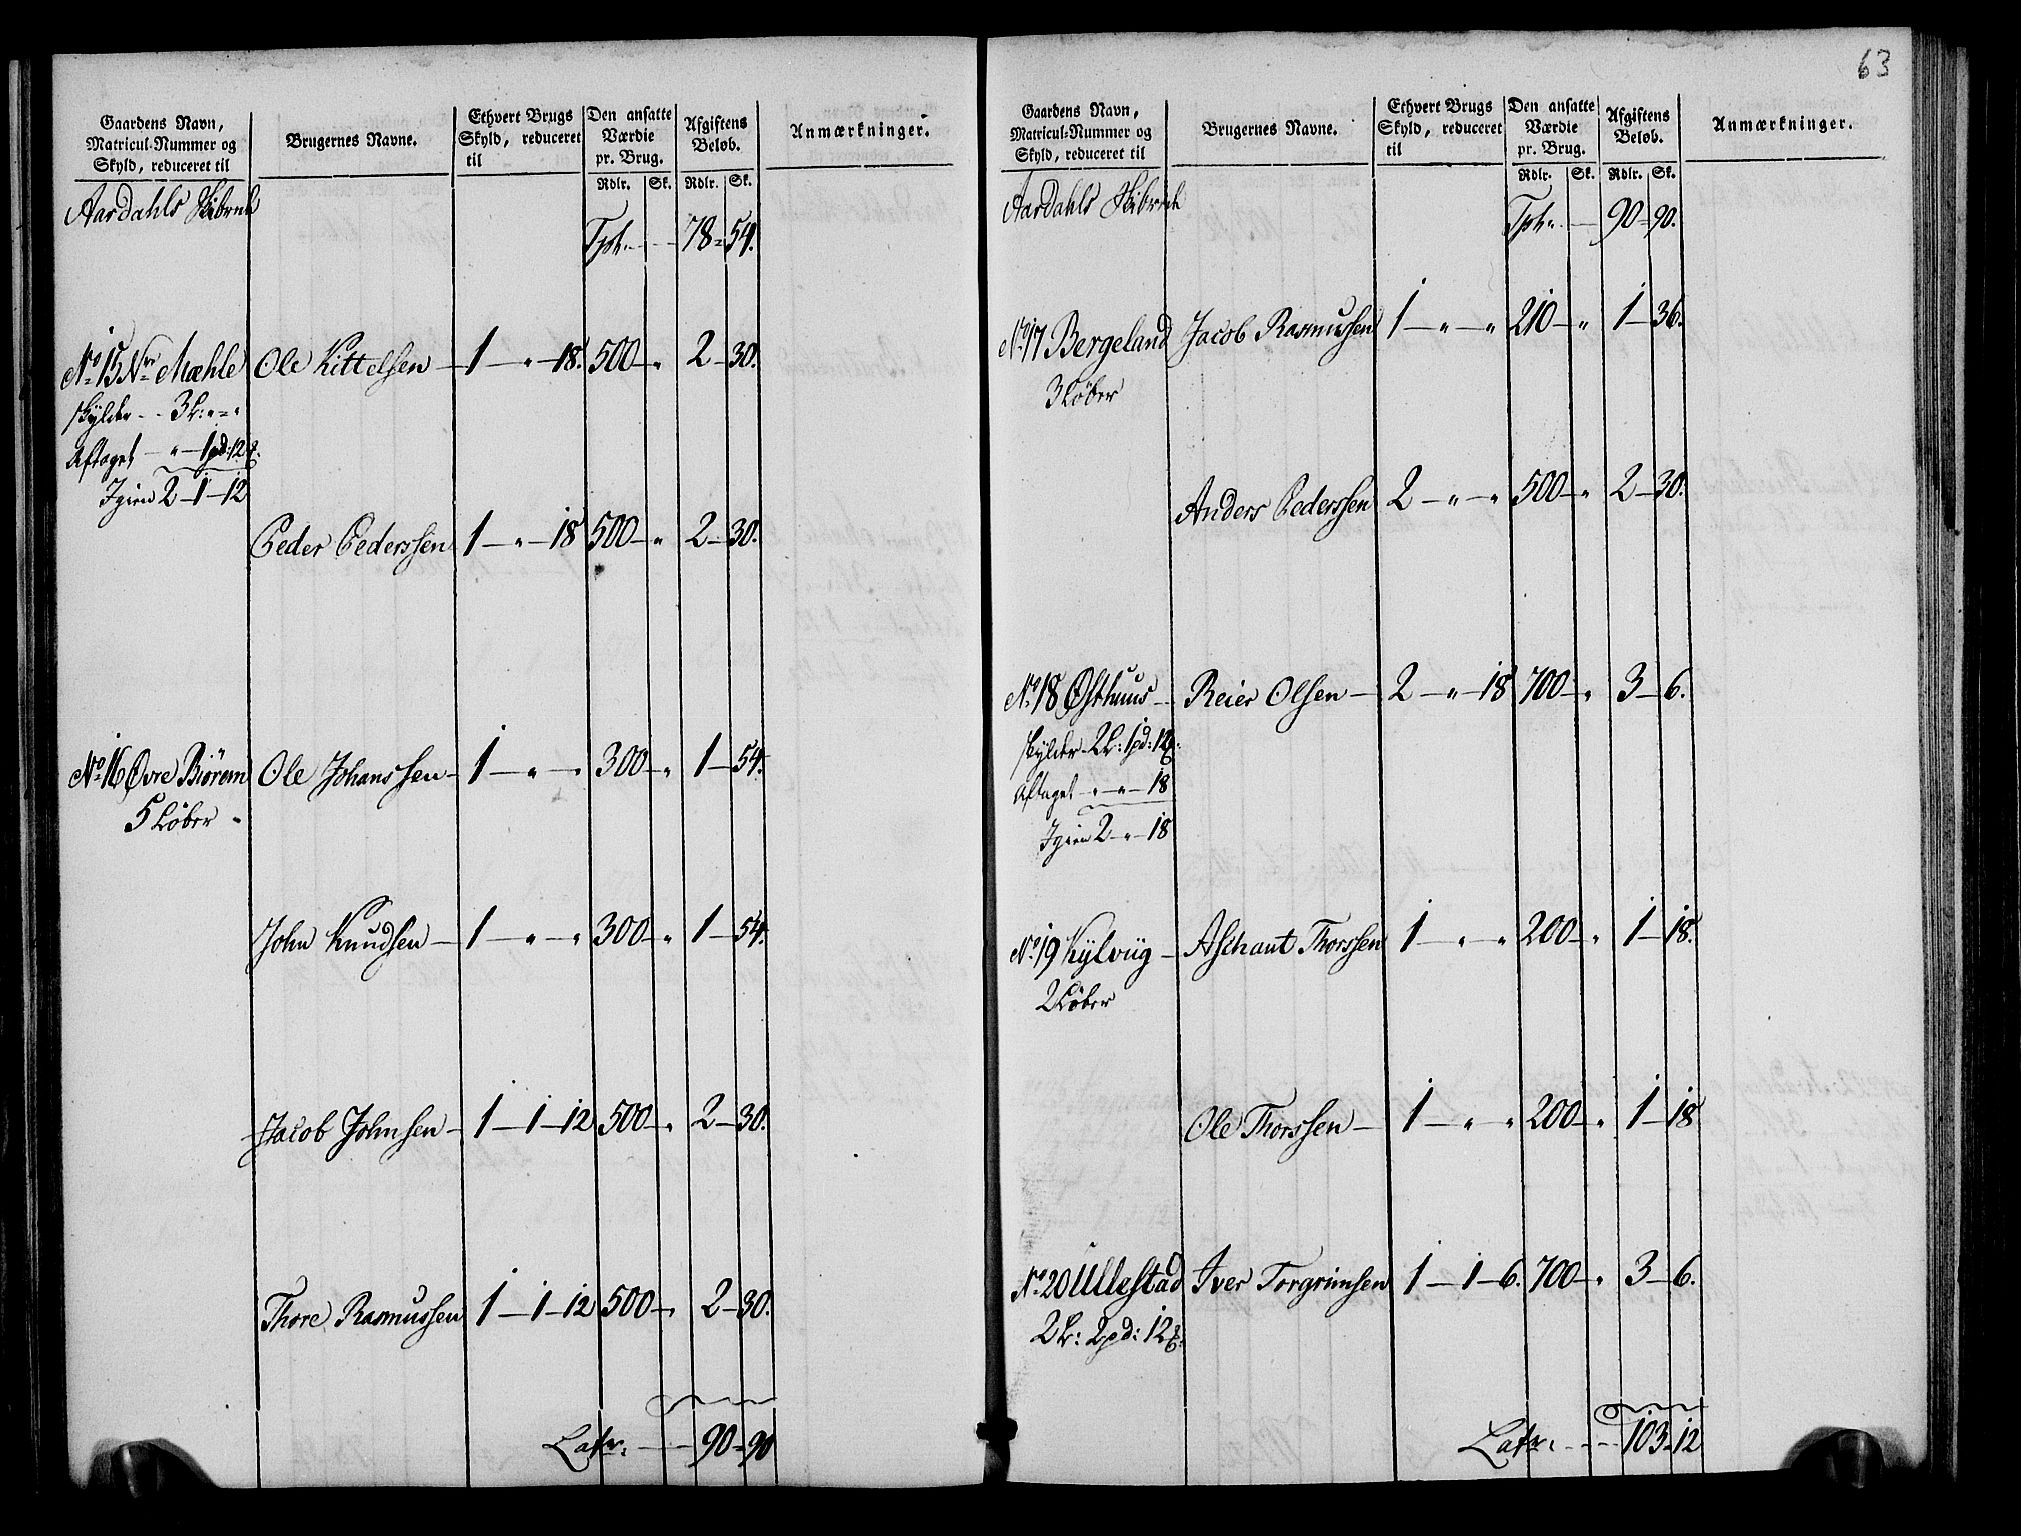 Gaardens Navn, Matricul-Nummer og Skyld, reduceret til | Brugernes Navne. | Ethvert Brugs Skyld, reduceret til | Den ansatte Værdie pr. Brug. | Afgiftens Beløb. | Anmærkninger.
Rdlr. | Sk. | Rdlr. | Sk.
Aardahls Skibrede
Tpt. - - 78 - 54.
No 15 Nre Mæhle | Ole Kittelsen | 1 - " - 18. | 500 - " | 2 - 30.
skylder - - 3 L: " - "
Aftaget - " - 1 pd: 12 
Igien 2 - 1 - 12
Peder Pederssen | 1 - " - 18 | 500 - " | 2 - 30.
No 16 Øvre Biørem | Ole Johanssen | 1 - " - " | 300 - " | 1 - 54.
5 Løber
John Knudsen | 1 - " - " | 300 - " | 1 - 54.
Jacob Johnsen | 1 - 1 - 12 | 500 - " | 2 - 30.
Thore Rasmussen | 1 - 1 - 12 | 500 - " | 2 - 30.
Latr: - - - 90 - 90
63
Gaardens Navn, Matricul-Nummer og Skyld, reduceret til | Brugernes Navne. | Ethvert Brugs Skyld, reduceret til | Den ansatte Værdie pr. Brug. | Afgiftens Beløb. | Anmærkninger.
Rdlr. | Sk. | Rdlr. | Sk.
Aardahls Skibrede
Tpt. - - 90 - 90.
No 17 Bergeland | Jacob Rasmussen | 1 - " - " | 210 - " | 1 - 36.
3 Løber
Anders Pederssen | 2 - " - " | 500 - " | 2 - 30.
No 18 Østhuus | Reier Olsen | 2 - " - 18 | 700 - " | 3 - 6.
skylder - 2 L: 1 pd: 12
Aftaget - " - " - 18
Igien 2 - " - 18
No 19 Kylviig | Aschaut Thorssen | 1 - " - " | 200 - " | 1 - 18.
2 Løber
Ole Thorssen | 1 - " - " | 200 - " | 1 - 18
No 20 Ullestad | Iver Torgrimsen | 1 - 1 - 6. | 700 - " | 3 - 6.
2 L: 2 pd: 12
Latr: - - - 103 - 12